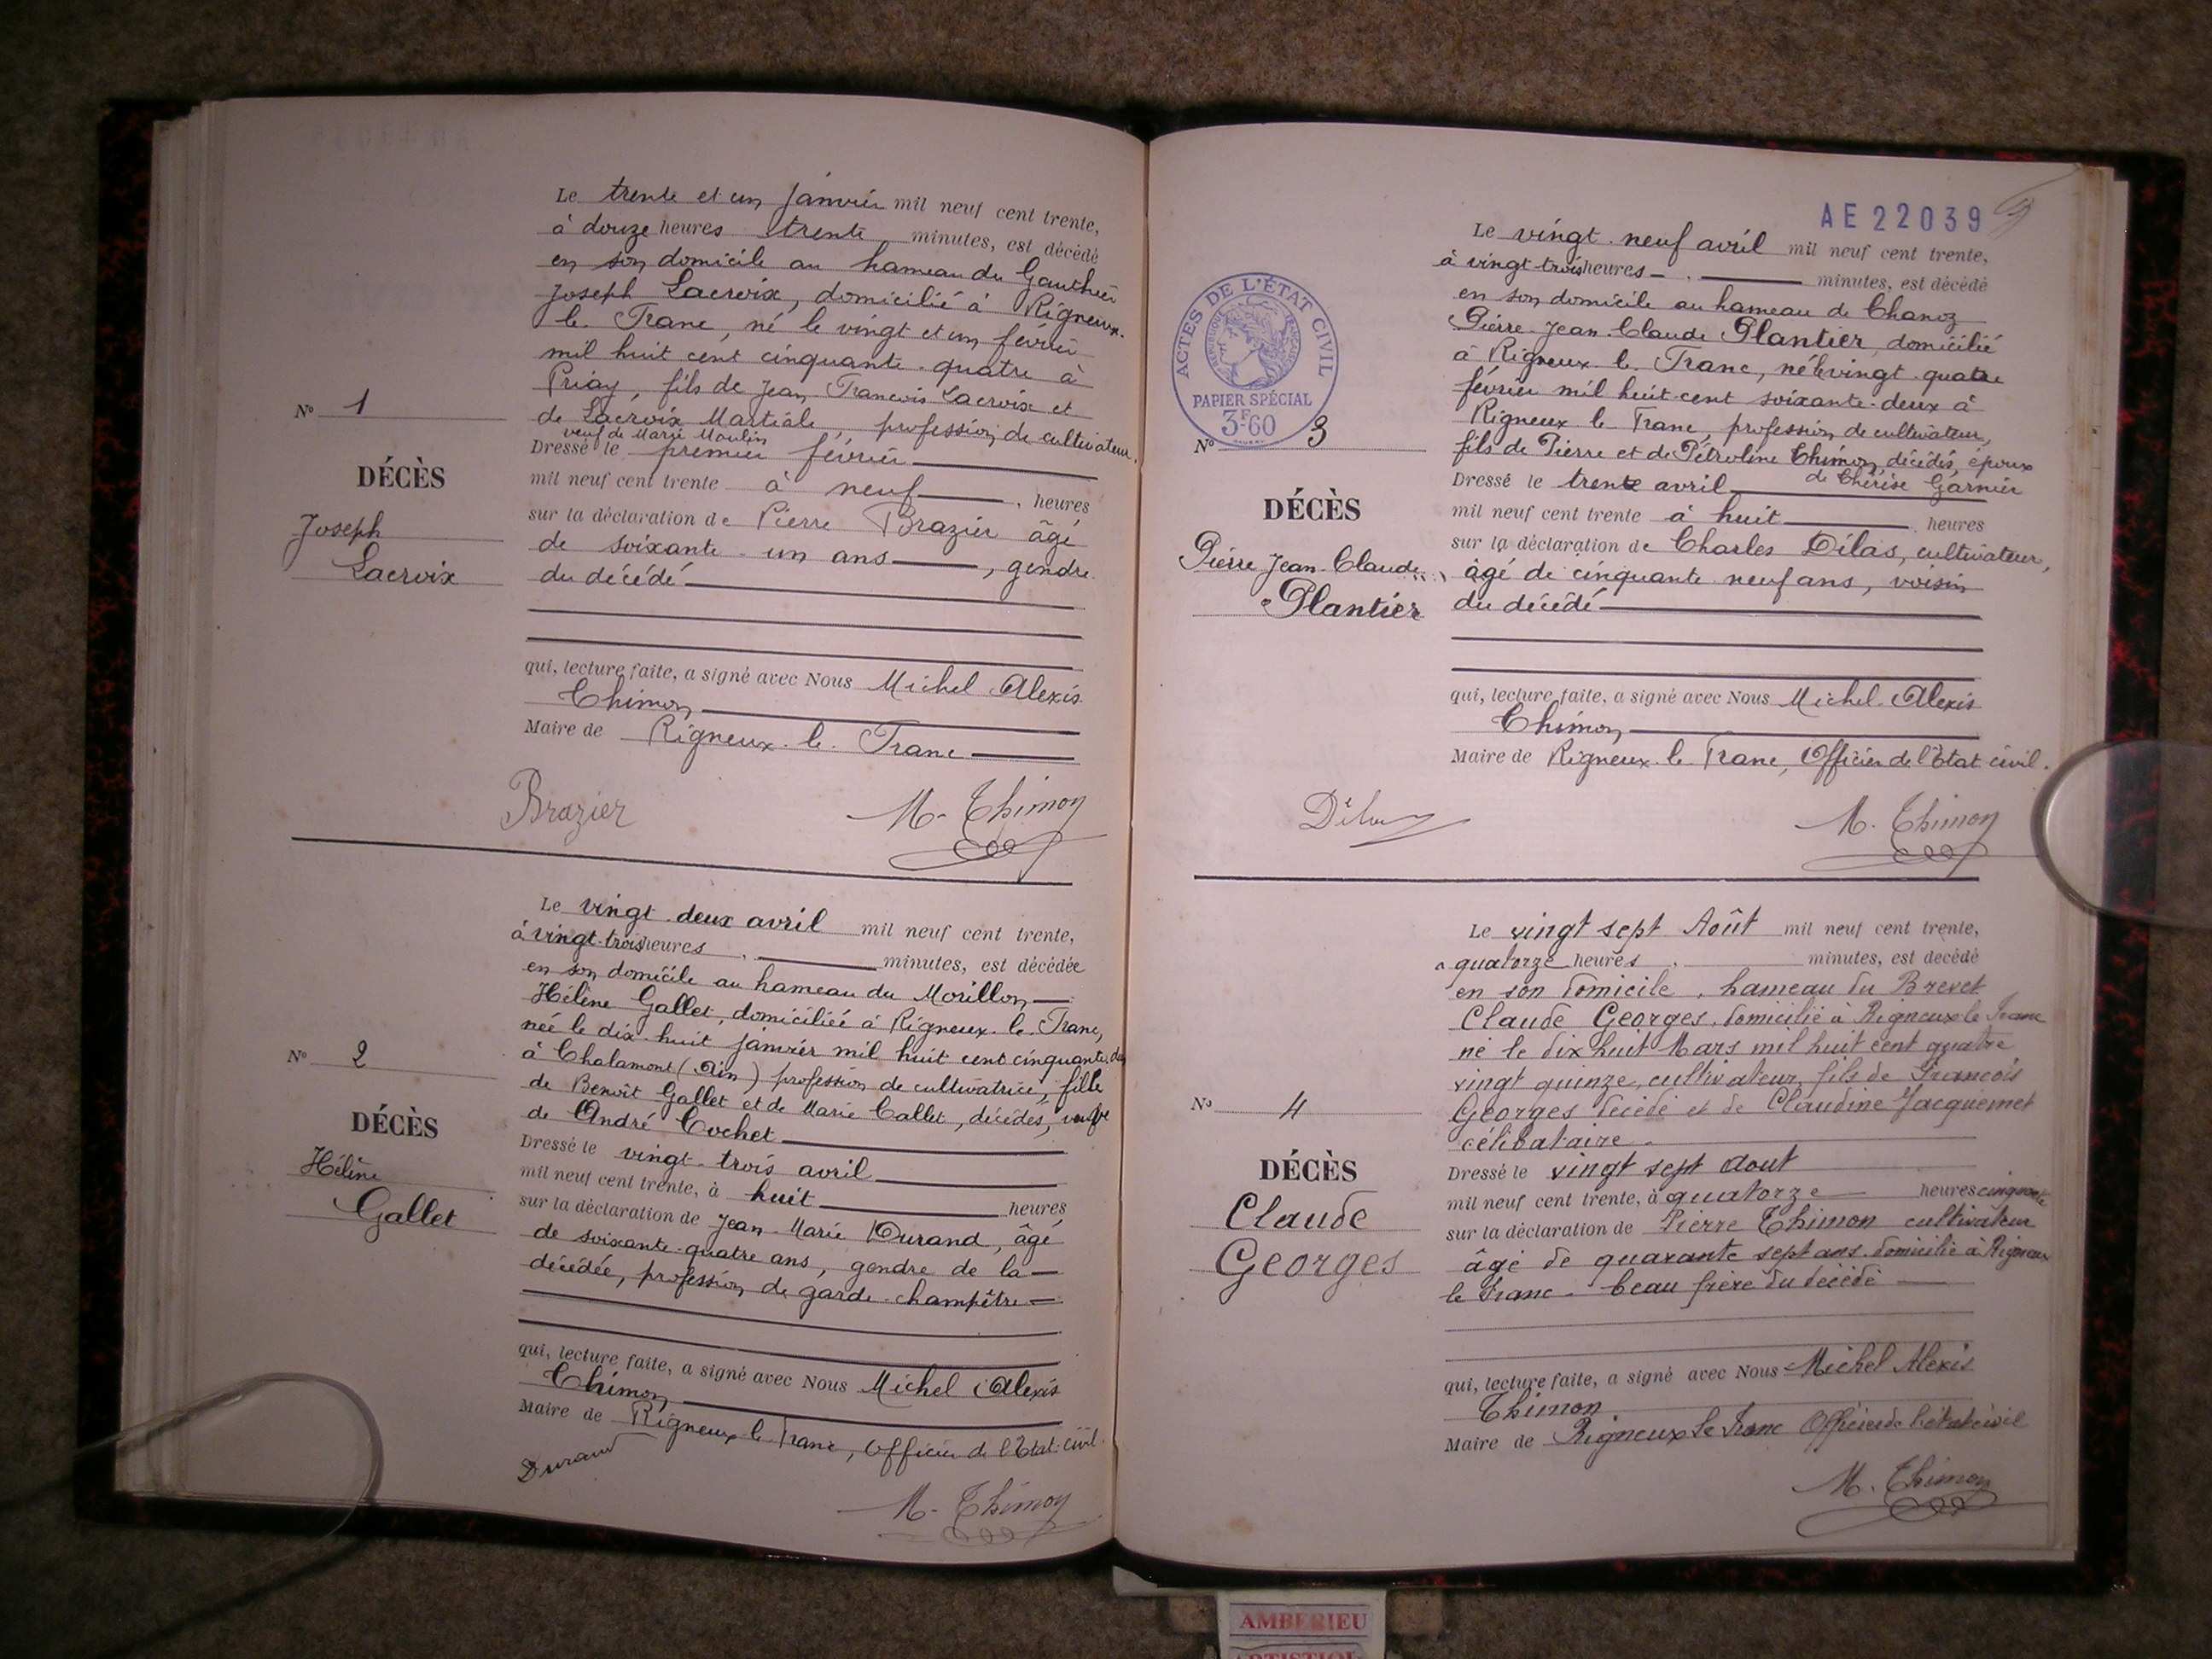 Le trente et un janvier mil neuf cent trente,
à douze heures trente minutes, est décédé
en son domicile au hameau du Gauthier
Joseph Lacroix, domicilié à Rigneux-
le-Franc, né le vingt et un février
mil huit cent cinquante-quatre à
Priay, fils de Jean-François Lacroix et
de Lacroix Martiale, profession de cultivateur.
veuf de Marie Moulin
Dressé le premier février
mil neuf cent trente à neuf heures
sur la déclaration de Pierre Brazier âgé
de soixante-un ans, gendre
du décédé
qui, lecture faite, a signé avec Nous Michel Alexis
Thimon
Maire de Rigneux-le-Franc
Brazier M. Thimon
Nº 1
DÉCÈS
Joseph
Lacroix
Le vingt-deux avril mil neuf cent trente,
à vingt-trois heures minutes, est décédée
en son domicile au hameau du Morillon
Hélène Gallet, domiciliée à Rigneux-le-Franc,
née le dix-huit janvier mil huit cent cinquante-
à Chalamont (Ain) profession de cultivatrice, fille
de Benoît Gallet et de Marie Callet, décédés, veuve
de André Cochet
Dressé le vingt-trois avril
mil neuf cent trente, à huit heures
sur la déclaration de Jean-Marie Durand, âgé
de soixante-quatre ans, gendre de la
décédée, profession de garde-champêtre
qui, lecture faite, a signé avec Nous Michel Alexis
Thimon
Maire de Rigneux-le-Franc, Officier de l'Etat-civil.
Durand
M. Thimon
Nº 2
DÉCÈS
Hélène
Gallet
AE 22039
ACTES DE L'ÉTAT CIVIL
RÉPUBLIQUE FRANÇAISE
PAPIER SPÉCIAL
3F60
Le vingt-neuf avril mil neuf cent trente,
à vingt-trois heures minutes, est décédé
en son domicile au hameau de Chanoz
Pierre-Jean-Claude Plantier, domicilié
à Rigneux-le-Franc, né le vingt-quatre
février mil huit-cent soixante-deux à
Rigneux-le-Franc, profession de cultivateur,
fils de Pierre et de Pétroline Thimon, décédés, époux
de Thérèse Garnier
Dressé le trente avril
mil neuf cent trente à huit heures
sur la déclaration de Charles Dilas, cultivateur,
âgé de cinquante-neuf ans, voisin
du décédé
qui, lecture faite, a signé avec Nous Michel Alexis
Thimon
Maire de Rigneux-le-Franc, Officier de l'Etat civil.
Dilas M. Thimon
Nº 3
DÉCÈS
Pierre Jean-Claude
Plantier
Le vingt sept Août mil neuf cent trente,
a quatorze heures minutes, est decédé
en son domicile, hameau du Brevet
Claude Georges, domicilié à Rigneux le Franc
né le dix huit Mars mil huit cent quatre
vingt quinze, cultivateur, fils de François
Georges décédé et de Claudine Jacquemet
célibataire.
Dressé le vingt sept aout
mil neuf cent trente, à quatorze heures cinquante
sur la déclaration de Pierre Thimon cultivateur
âgé de quarante sept ans, domicilié à Rigneux
le Franc - beau frère du décédé
qui, lecture faite, a signé avec Nous Michel Alexis
Thimon
Maire de Rigneux le Franc Officier de l'état civil
M. Thimon
Nº 4
DÉCÈS
Claude
Georges
AMBERIEU